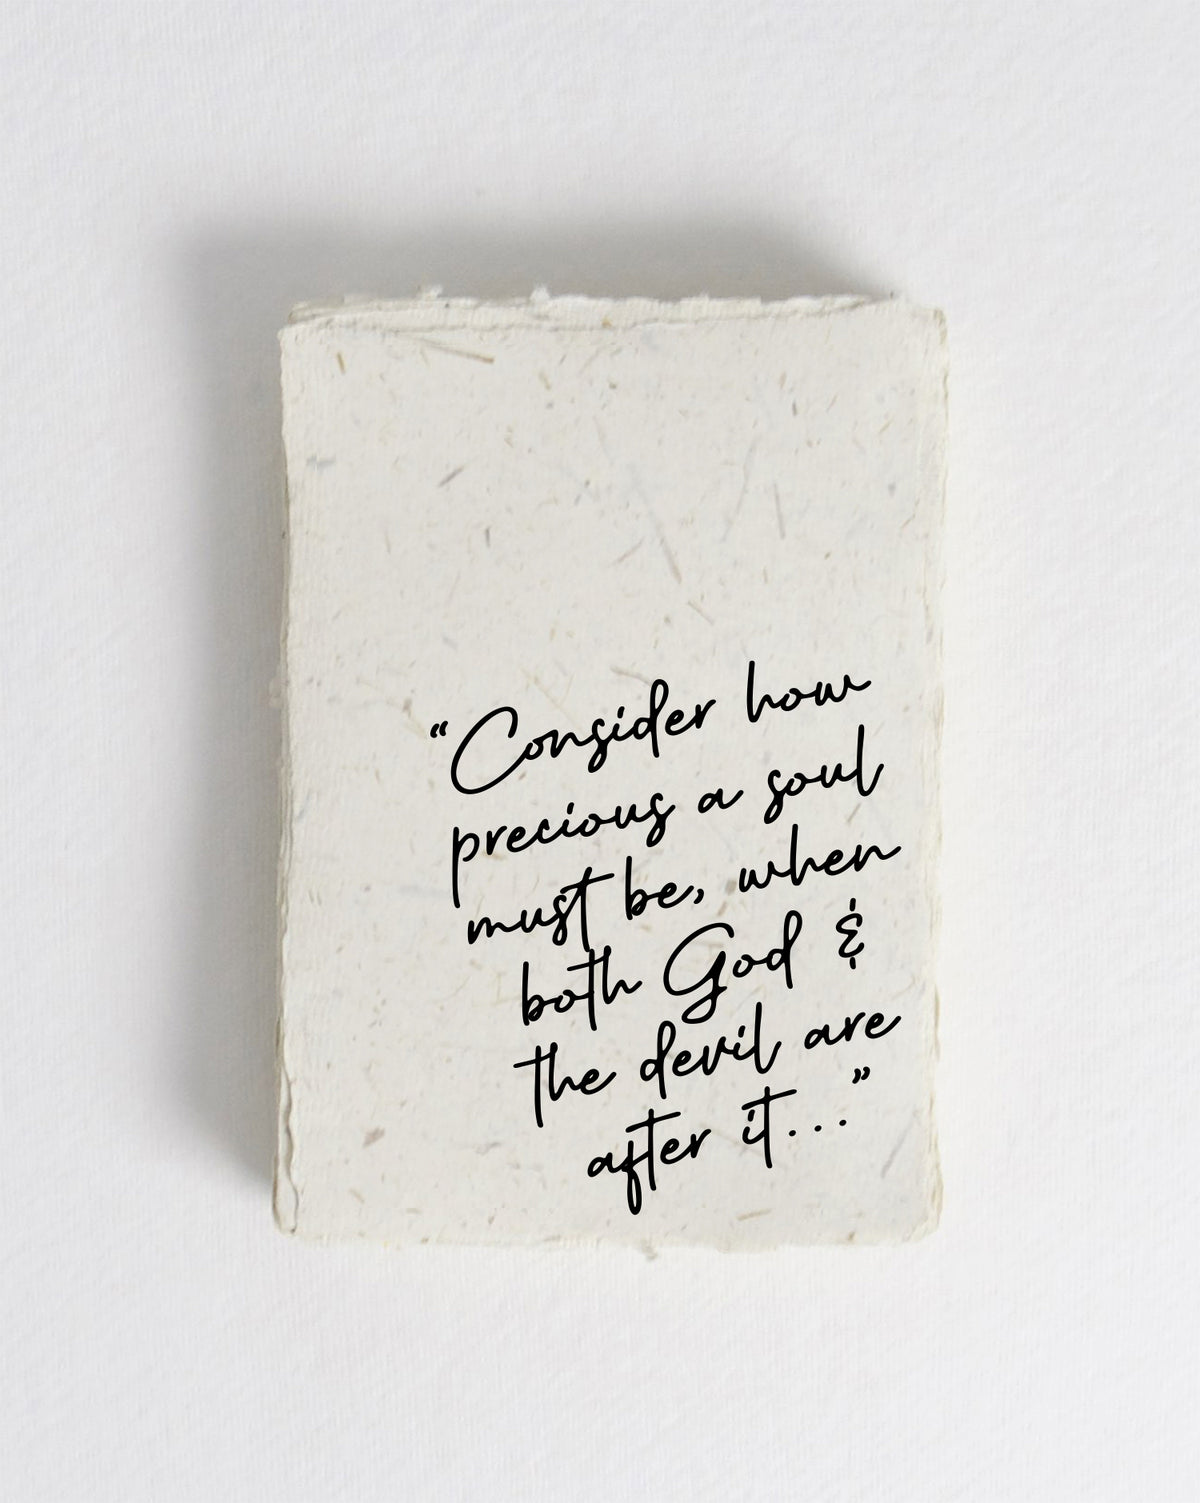 “Consider how
precious a soul
must be, when
both God &
the devil are
after it...”